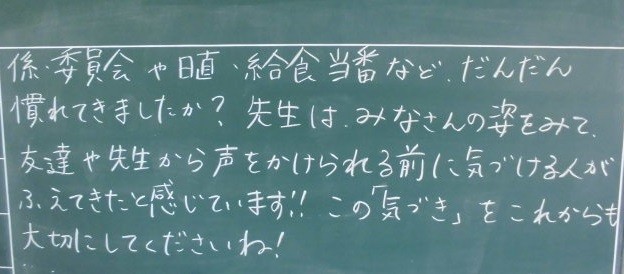 係・委員会や日直、給食当番など、だんだん
慣れてきましたか?先生は、みなさんの姿をみて、
友達や先生から声をかけられる前に気づける人が
ふえてきたと感じています!!この「気づき」をこれからも
大切にしてくださいね!